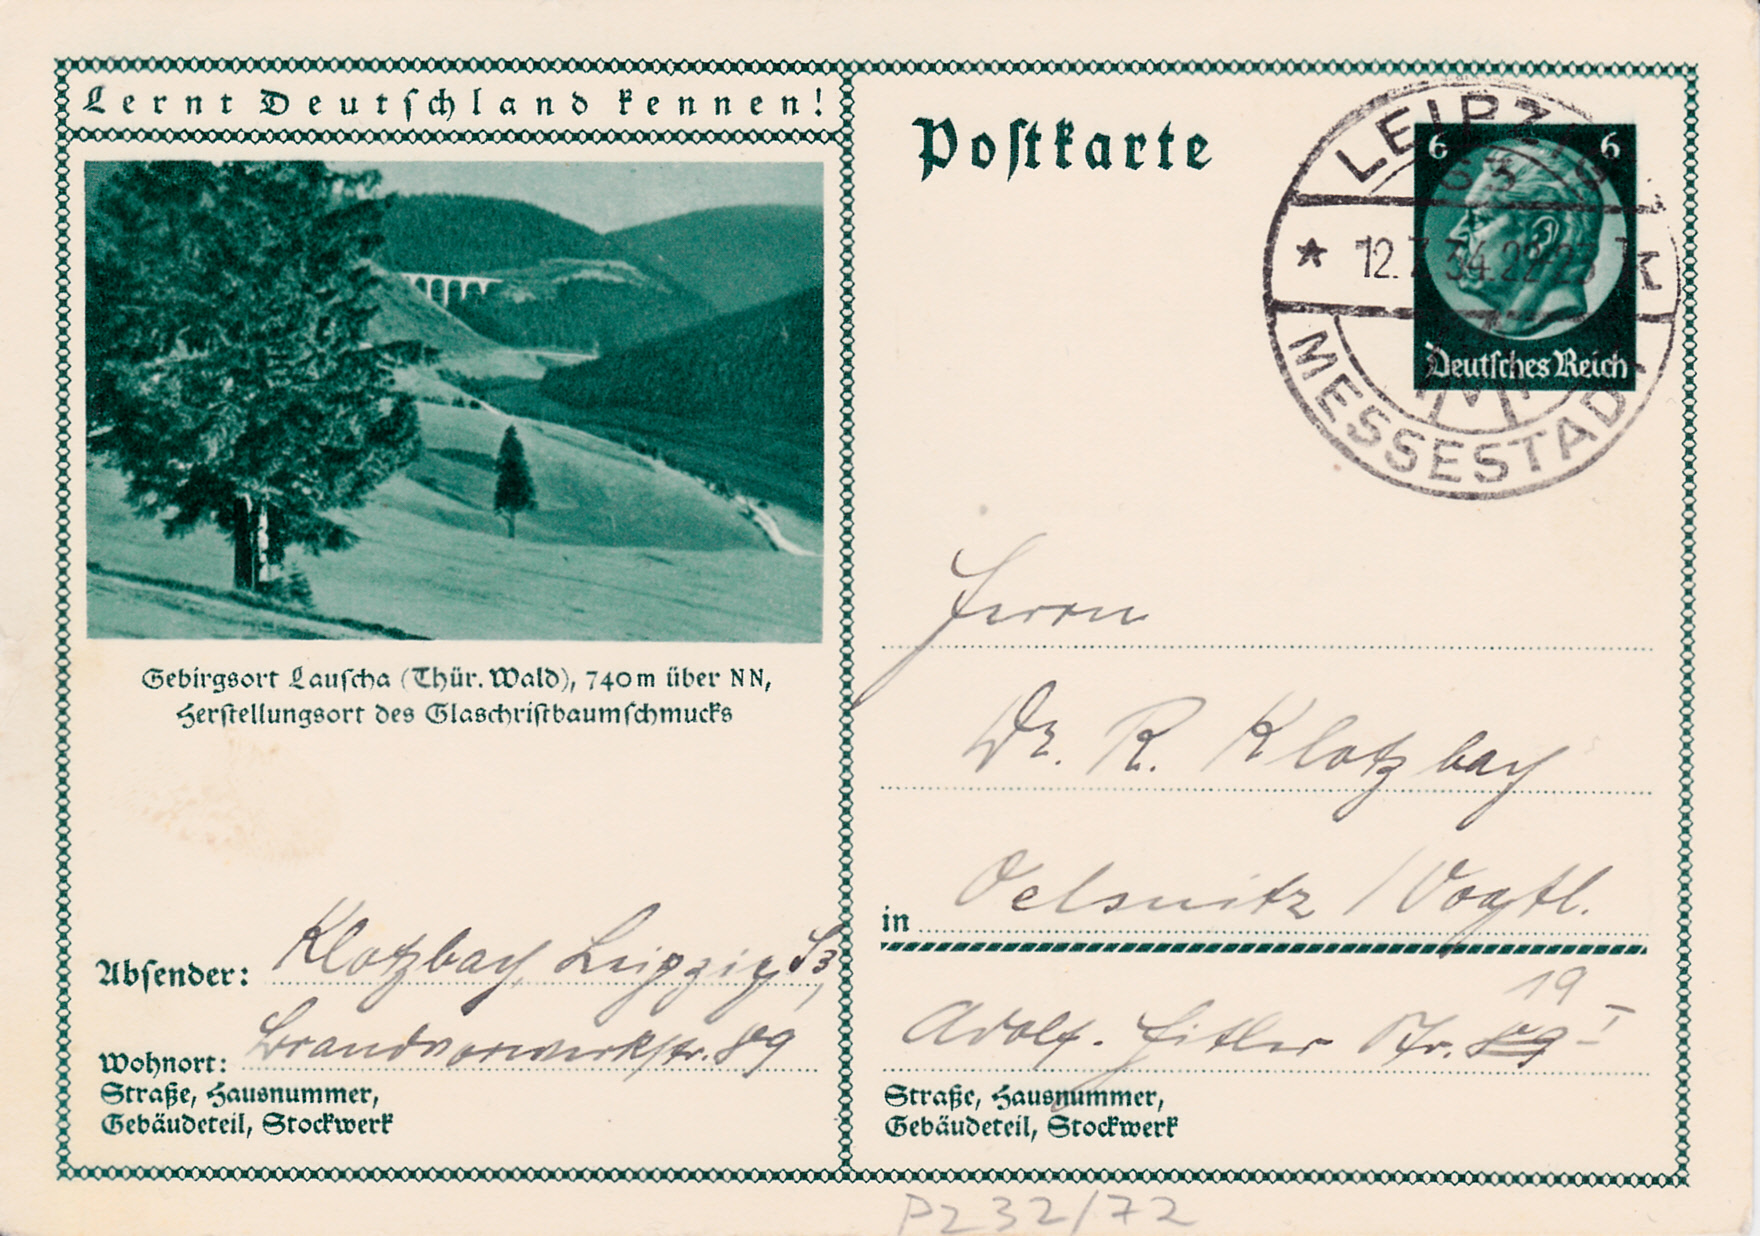 Lernt Deutschland kennen!
Gebirgsort Lauscha (Thür. Wald), 740m über NN,
Herstellungsort des Glaschristbaumschmucks
Absender: Klotzbach, Leipzig S3,
Wohnort: Brandvorwerkstr. 89
Straße, Hausnummer,
Gebäudeteil, Stockwerk
Postkarte
LEIPZIG
S3
* 12.7.34.22-23 *
MESSESTADT
6 6
Deutsches Reich
Herrn
Dr. R. Klotzbach
in Oelsnitz /Vogtl.
19
Adolf-Hitler Str. 89 I
Straße, Hausnummer,
Gebäudeteil, Stockwerk
P232/72